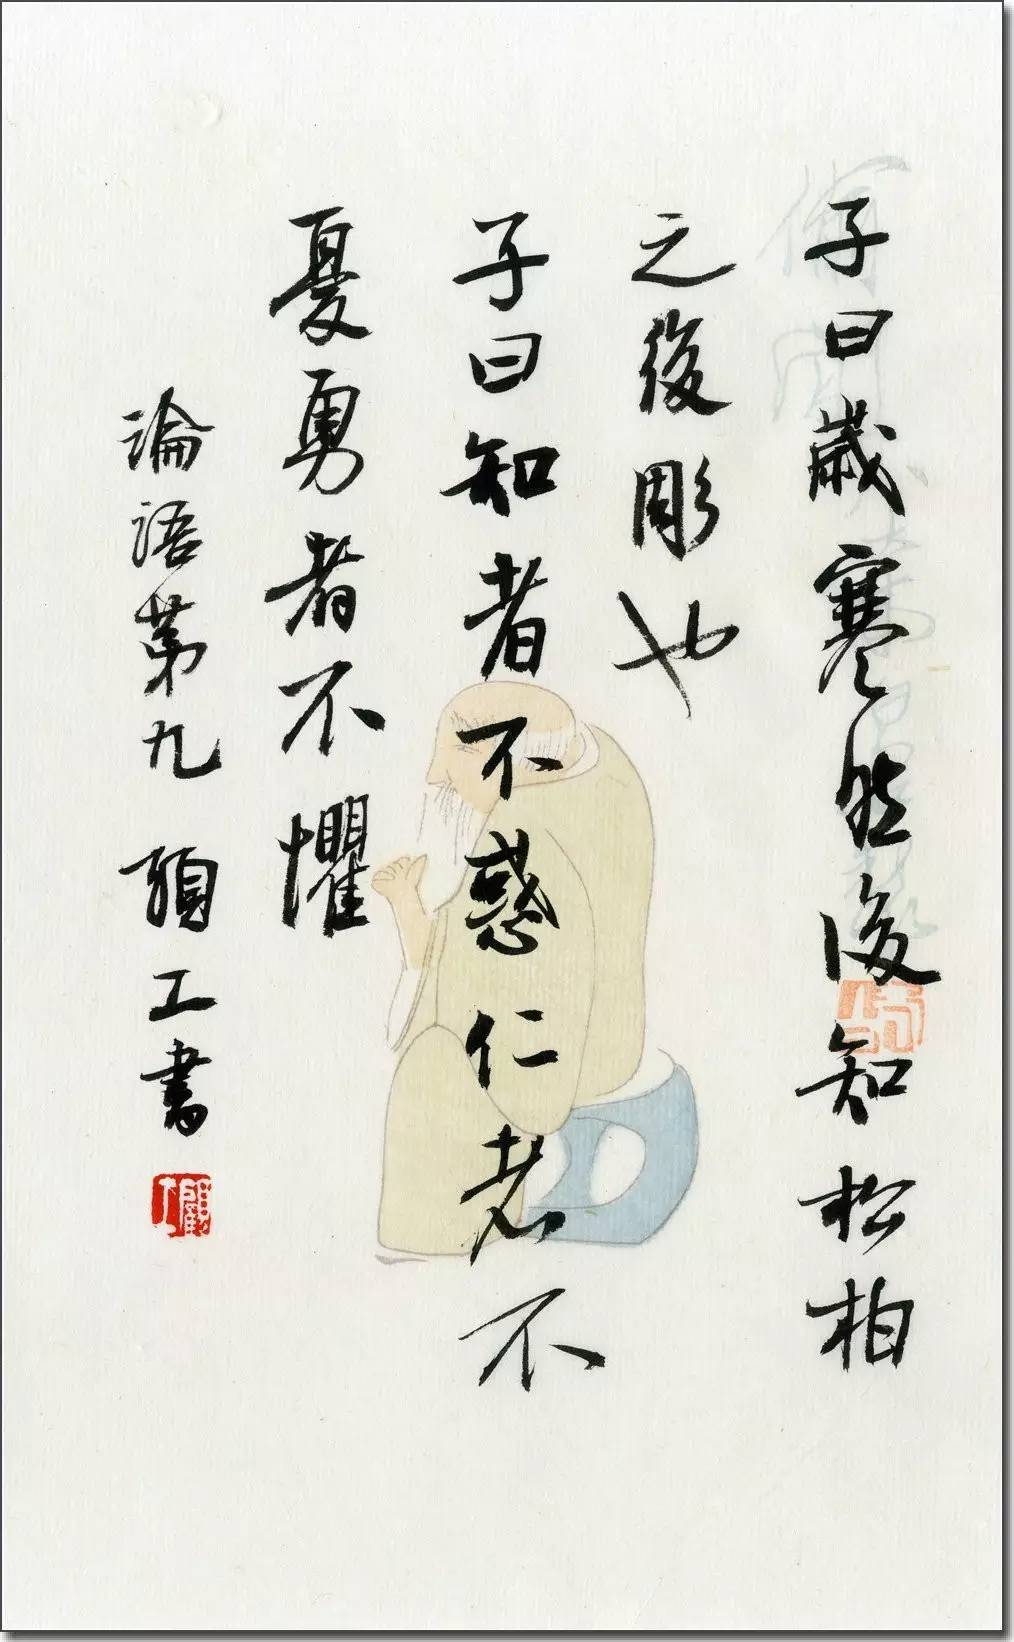 子曰歲寒然後知松柏
之後彫也
子曰知者不惑仁者不
憂勇者不懼
論語第九 頋工書